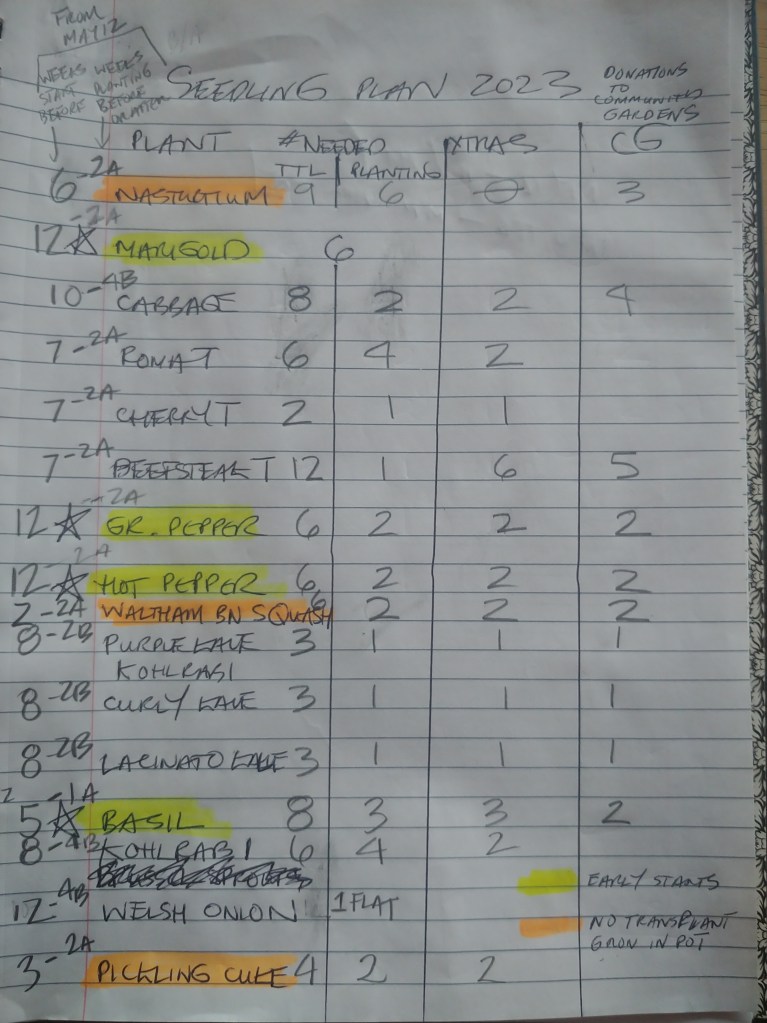 FROM
MAY 12
SEEDLING PLAN 2023
DONATIONS
TO
COMMUNITY
GARDENS
WEEKS WEEKS
START PLANTING
BEFORE BEFORE
OR AFTER
PLANT # NEEDED XTRAS CG
TTL PLANTING
6 -2A NASTURTIUM 9 6 0 3
12 ☆ -2A MARIGOLD 6
10 -4B CABBAGE 8 2 2 4
7 -2A ROMA T 6 4 2
7 -2A CHERRY T 2 1 1
7 -2A BEEFSTEAK T 12 1 6 5
12 ☆ -2A GR. PEPPER 6 2 2 2
12 ☆ -2A HOT PEPPER 6 2 2 2
2 -2A WALTHAM BN SQUASH 6 2 2 2
8 -2B PURPLE KALE 3 1 1 1
KOHLRABI
8 -2B CURLY KALE 3 1 1 1
8 -2B LACINATO KALE 3 1 1 1
5 ☆ -1A BASIL 8 3 3 2
8 -4B KOHLRABI 6 4 2
EARLY STARTS
12 -4B WELSH ONION 1 FLAT
NO TRANSPLANT
GROW IN POT
3 -2A PICKLING CUKE 4 2 2